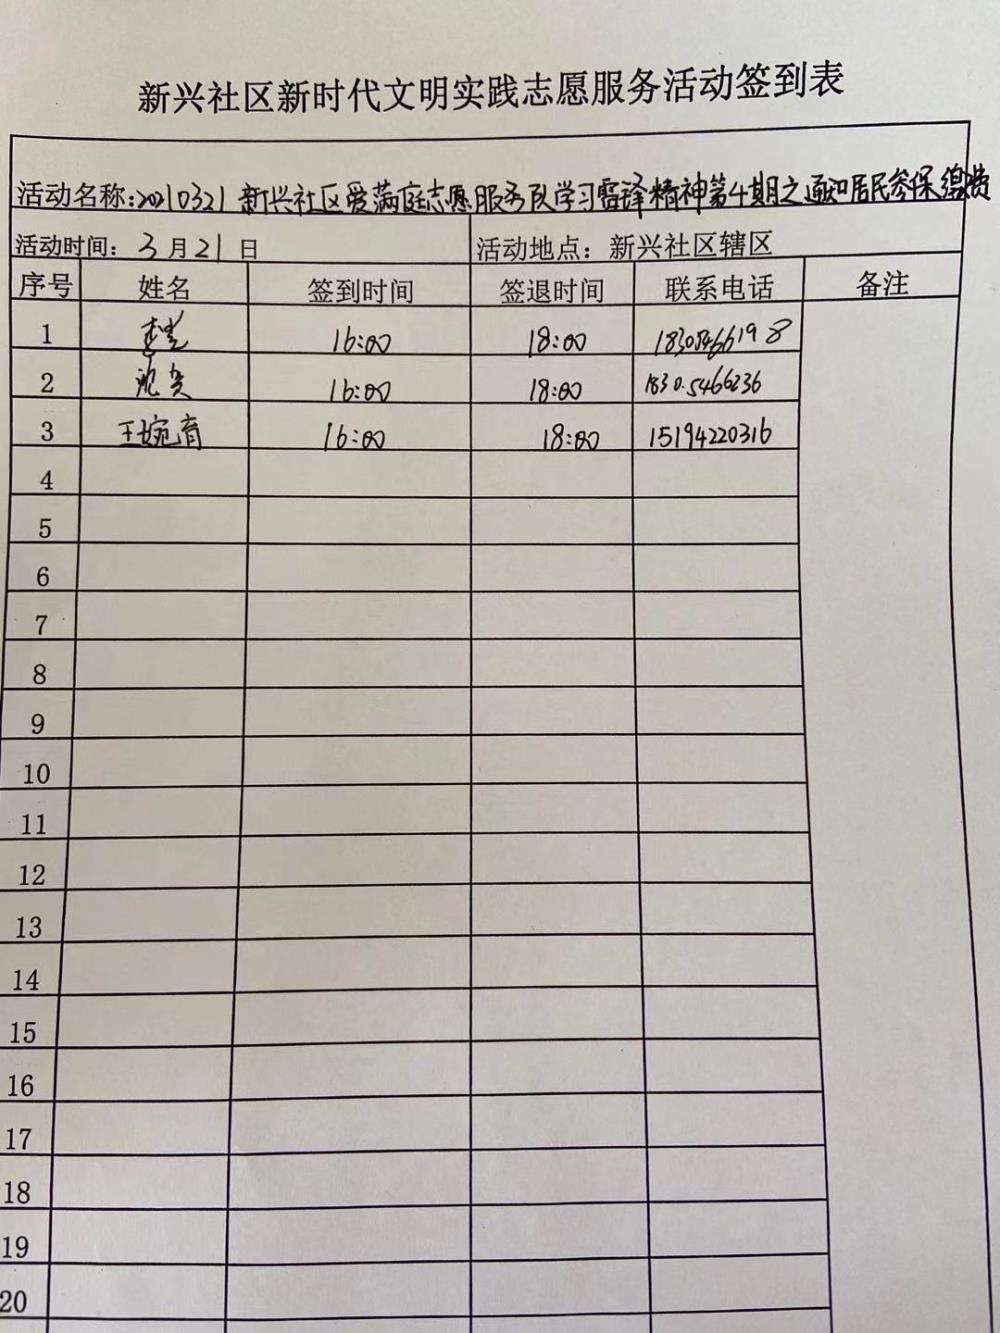 新兴社区新时代文明实践志愿服务活动签到表
活动名称:20210321 新兴社区爱满庭志愿服务队学习雷锋精神第4期之通知居民参保缴费
活动时间：3月21日 活动地点：新兴社区辖区
序号 姓名 签到时间 签退时间 联系电话 备注
1 16:00 18:00
2 16:00 18:00 18305466236
3 王婉育 16:00 18:00 15194220316
4
5
6
7
8
9
10
11
12
13
14
15
16
17
18
19
20